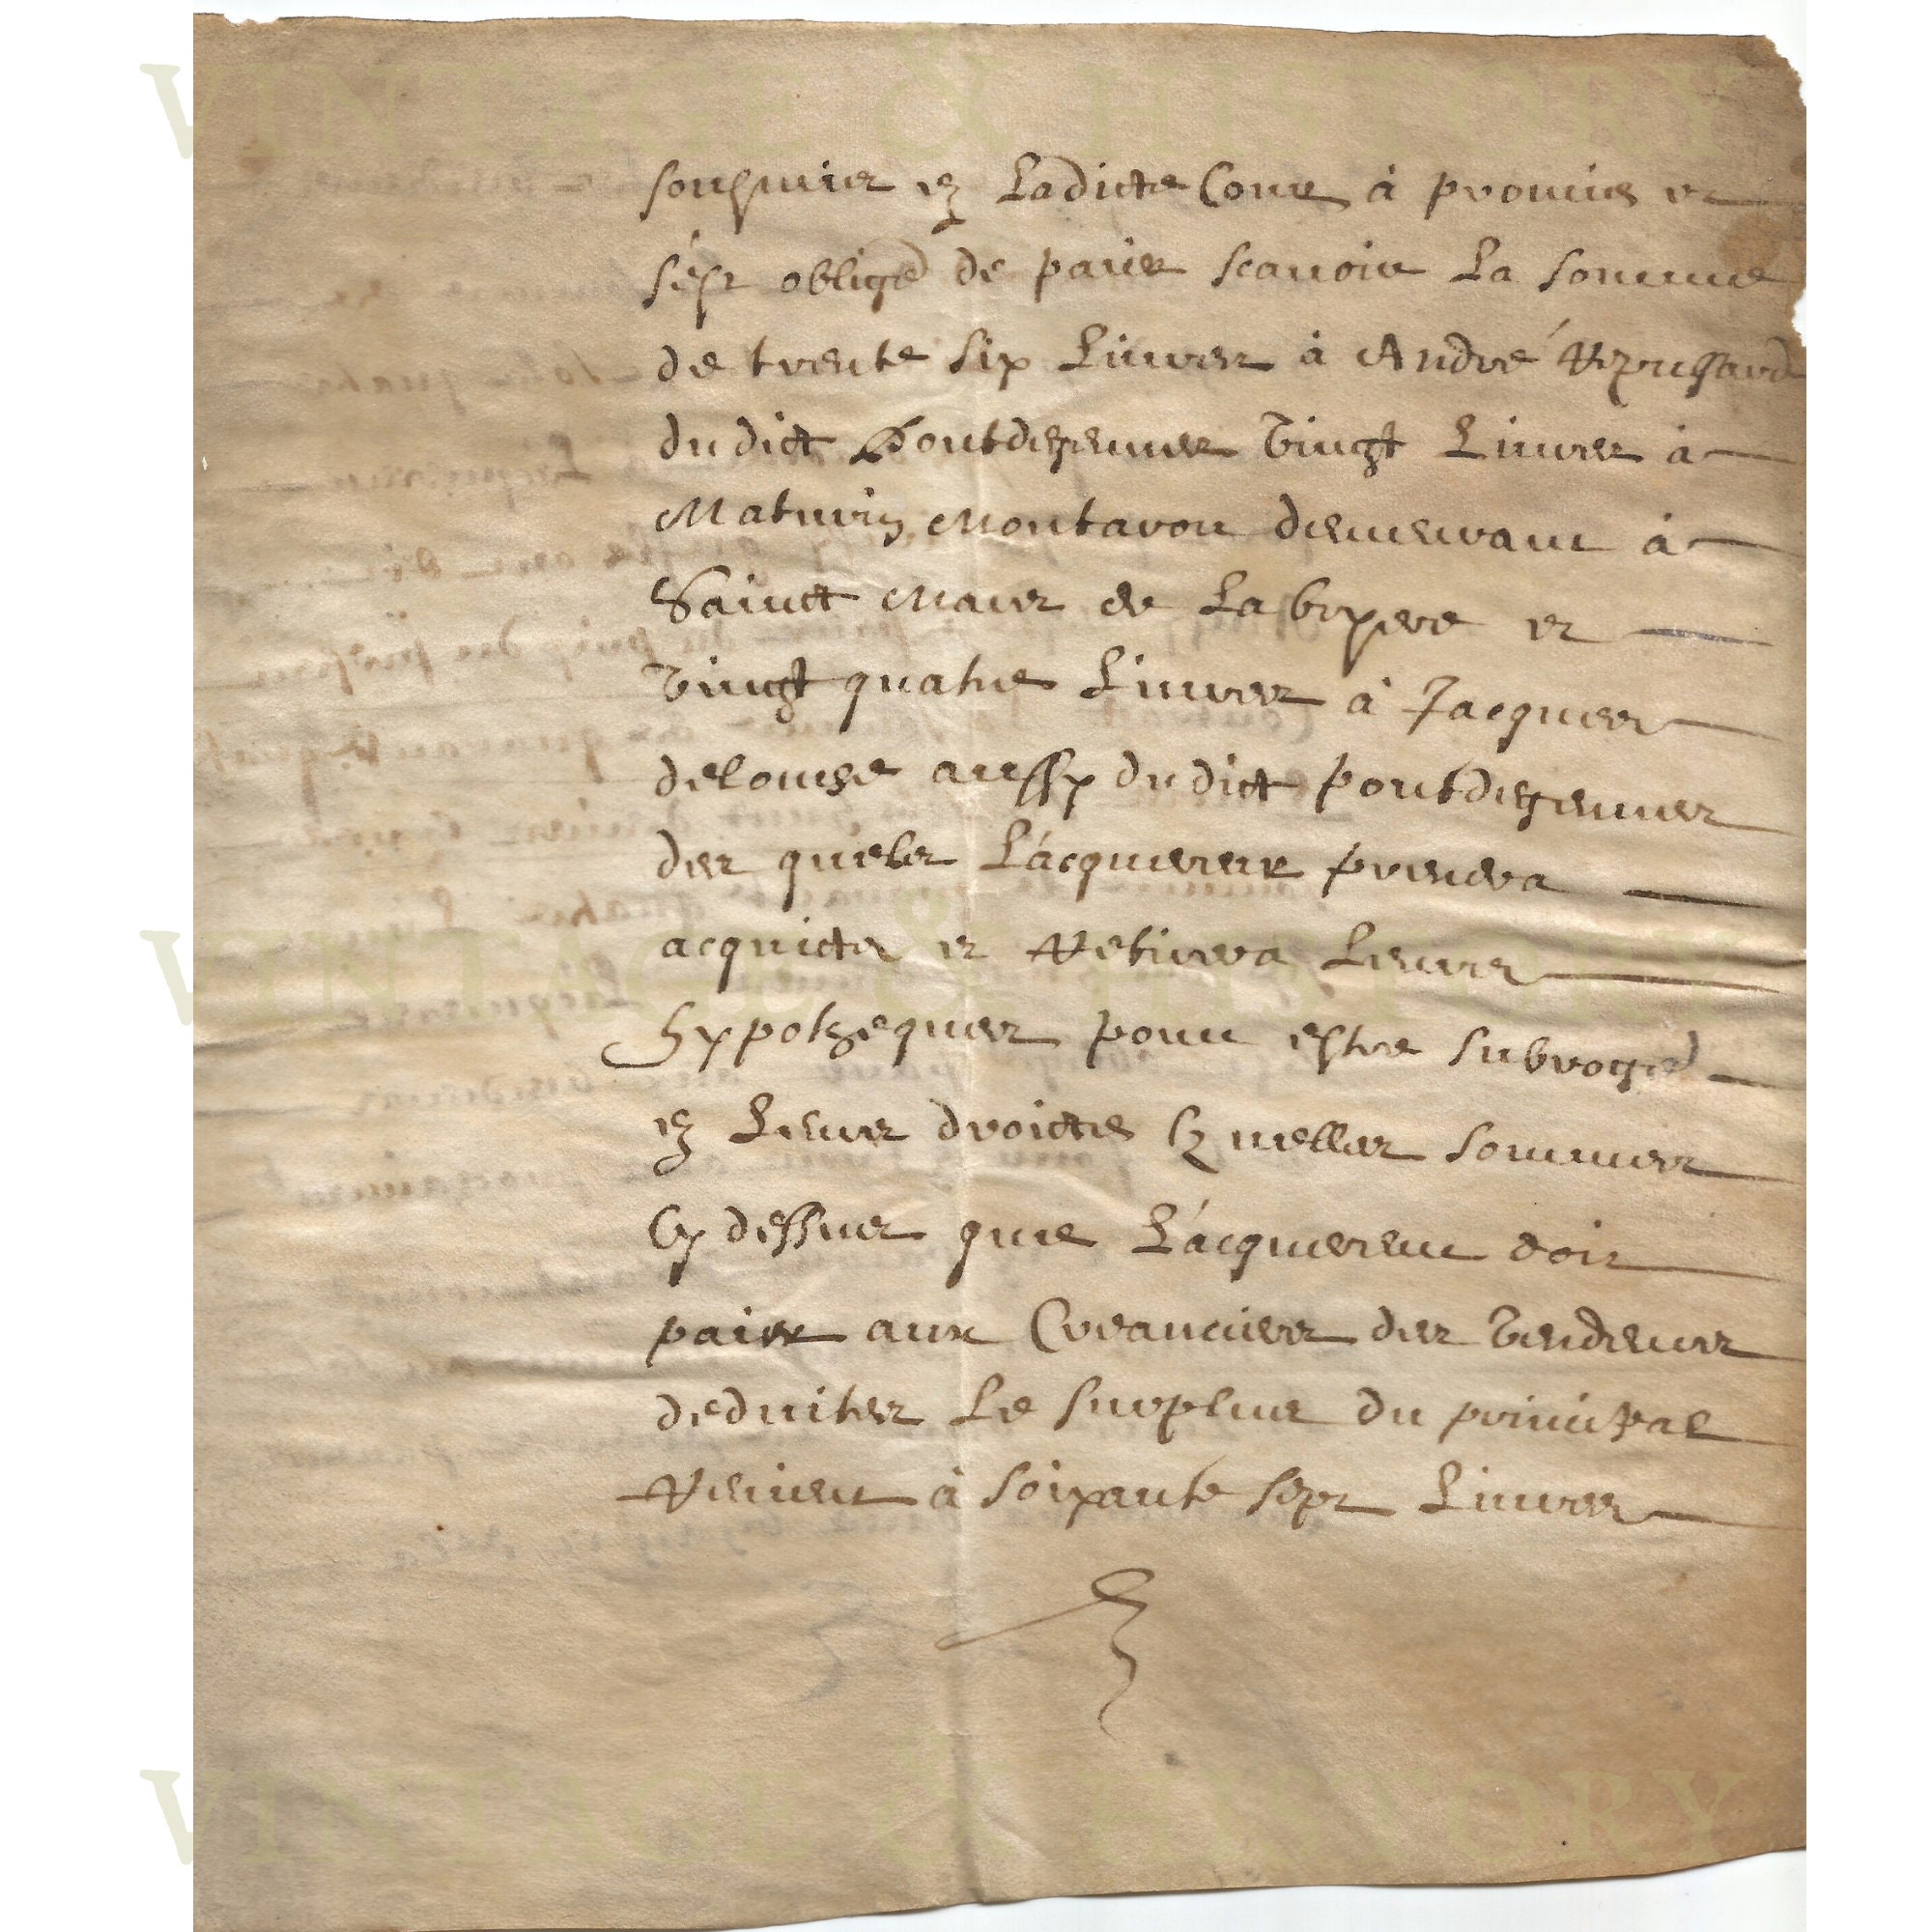 VINTAGE & HISTORY
soubzmis en Ladicte Cour à promis et
s'est obligé de paier scauoir La somme
de trente six Liures à André
du dict Pontdegennes Vingt Liures à
Maturin Montaron demeurant à
Sainct Mars de La bryere et
Vingt quatre Liures à Jacques
delouse aussy du dict pontdegennes
des quels L'acquereur prendra
acquicts et Retirera Leurs
hypotheques pour estre subrogé
en Leurs droictes Lesquelles sommes
Cy dessus que L'acquereur doit
paier aux Creanciers des Vendeurs
deduites Le surplus du principal
Reuient à soixante sept Liures
VINTAGE & HISTORY
VINTAGE & HISTORY